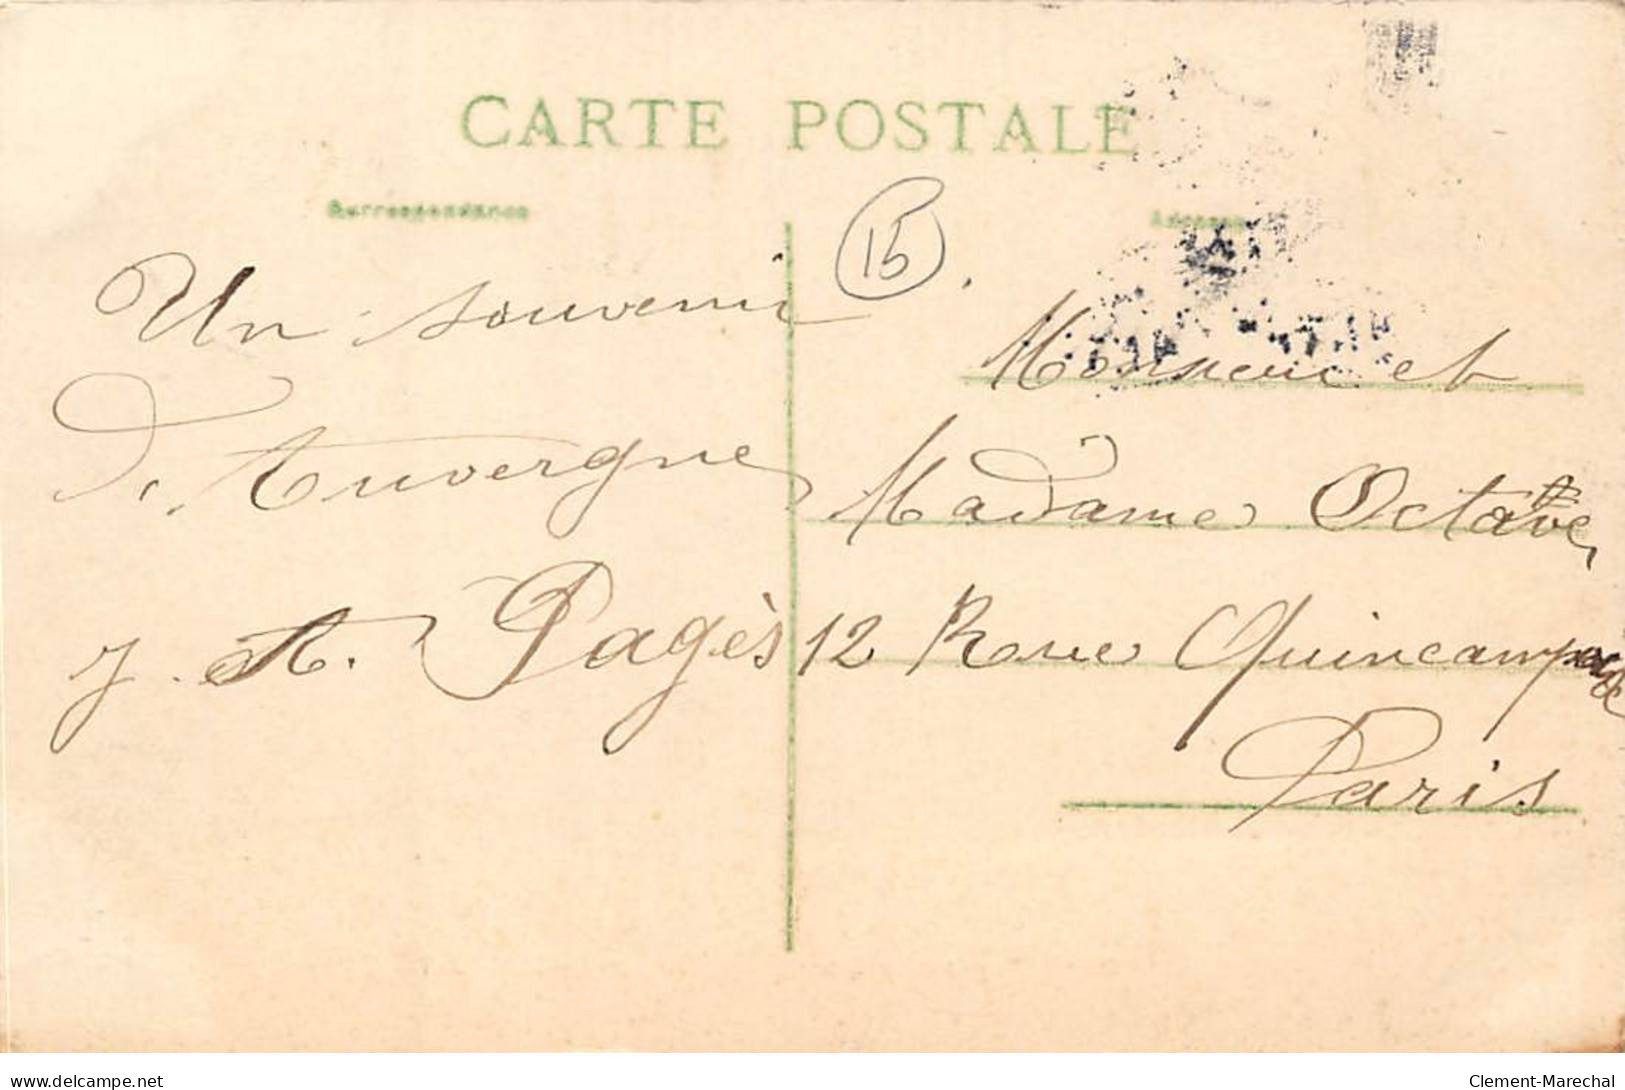 CARTE POSTALE
Correspondance
Adresse
15
Un souvenir
d'Auvergne
J. A. Pagès
Monsieur et
Madame Octave
12 Rue Quincampoix
Paris
www.delcampe.net
Clement-Marechal